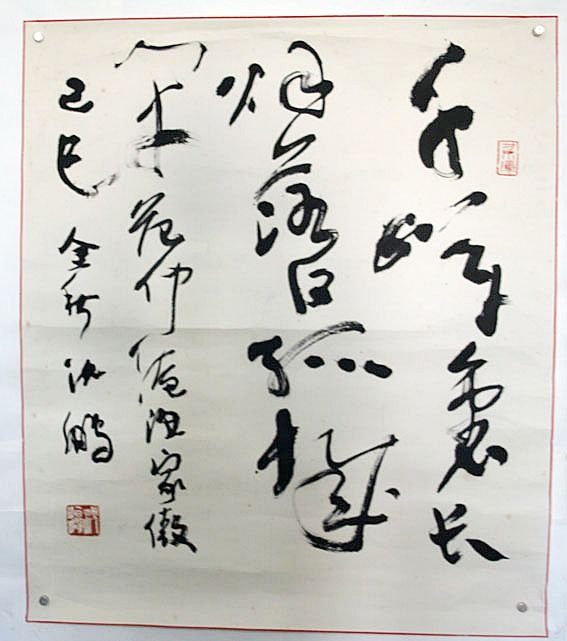 千嶂裏长
烟落日孤城
闭范仲淹渔家傲
己巳金秋沈鹏